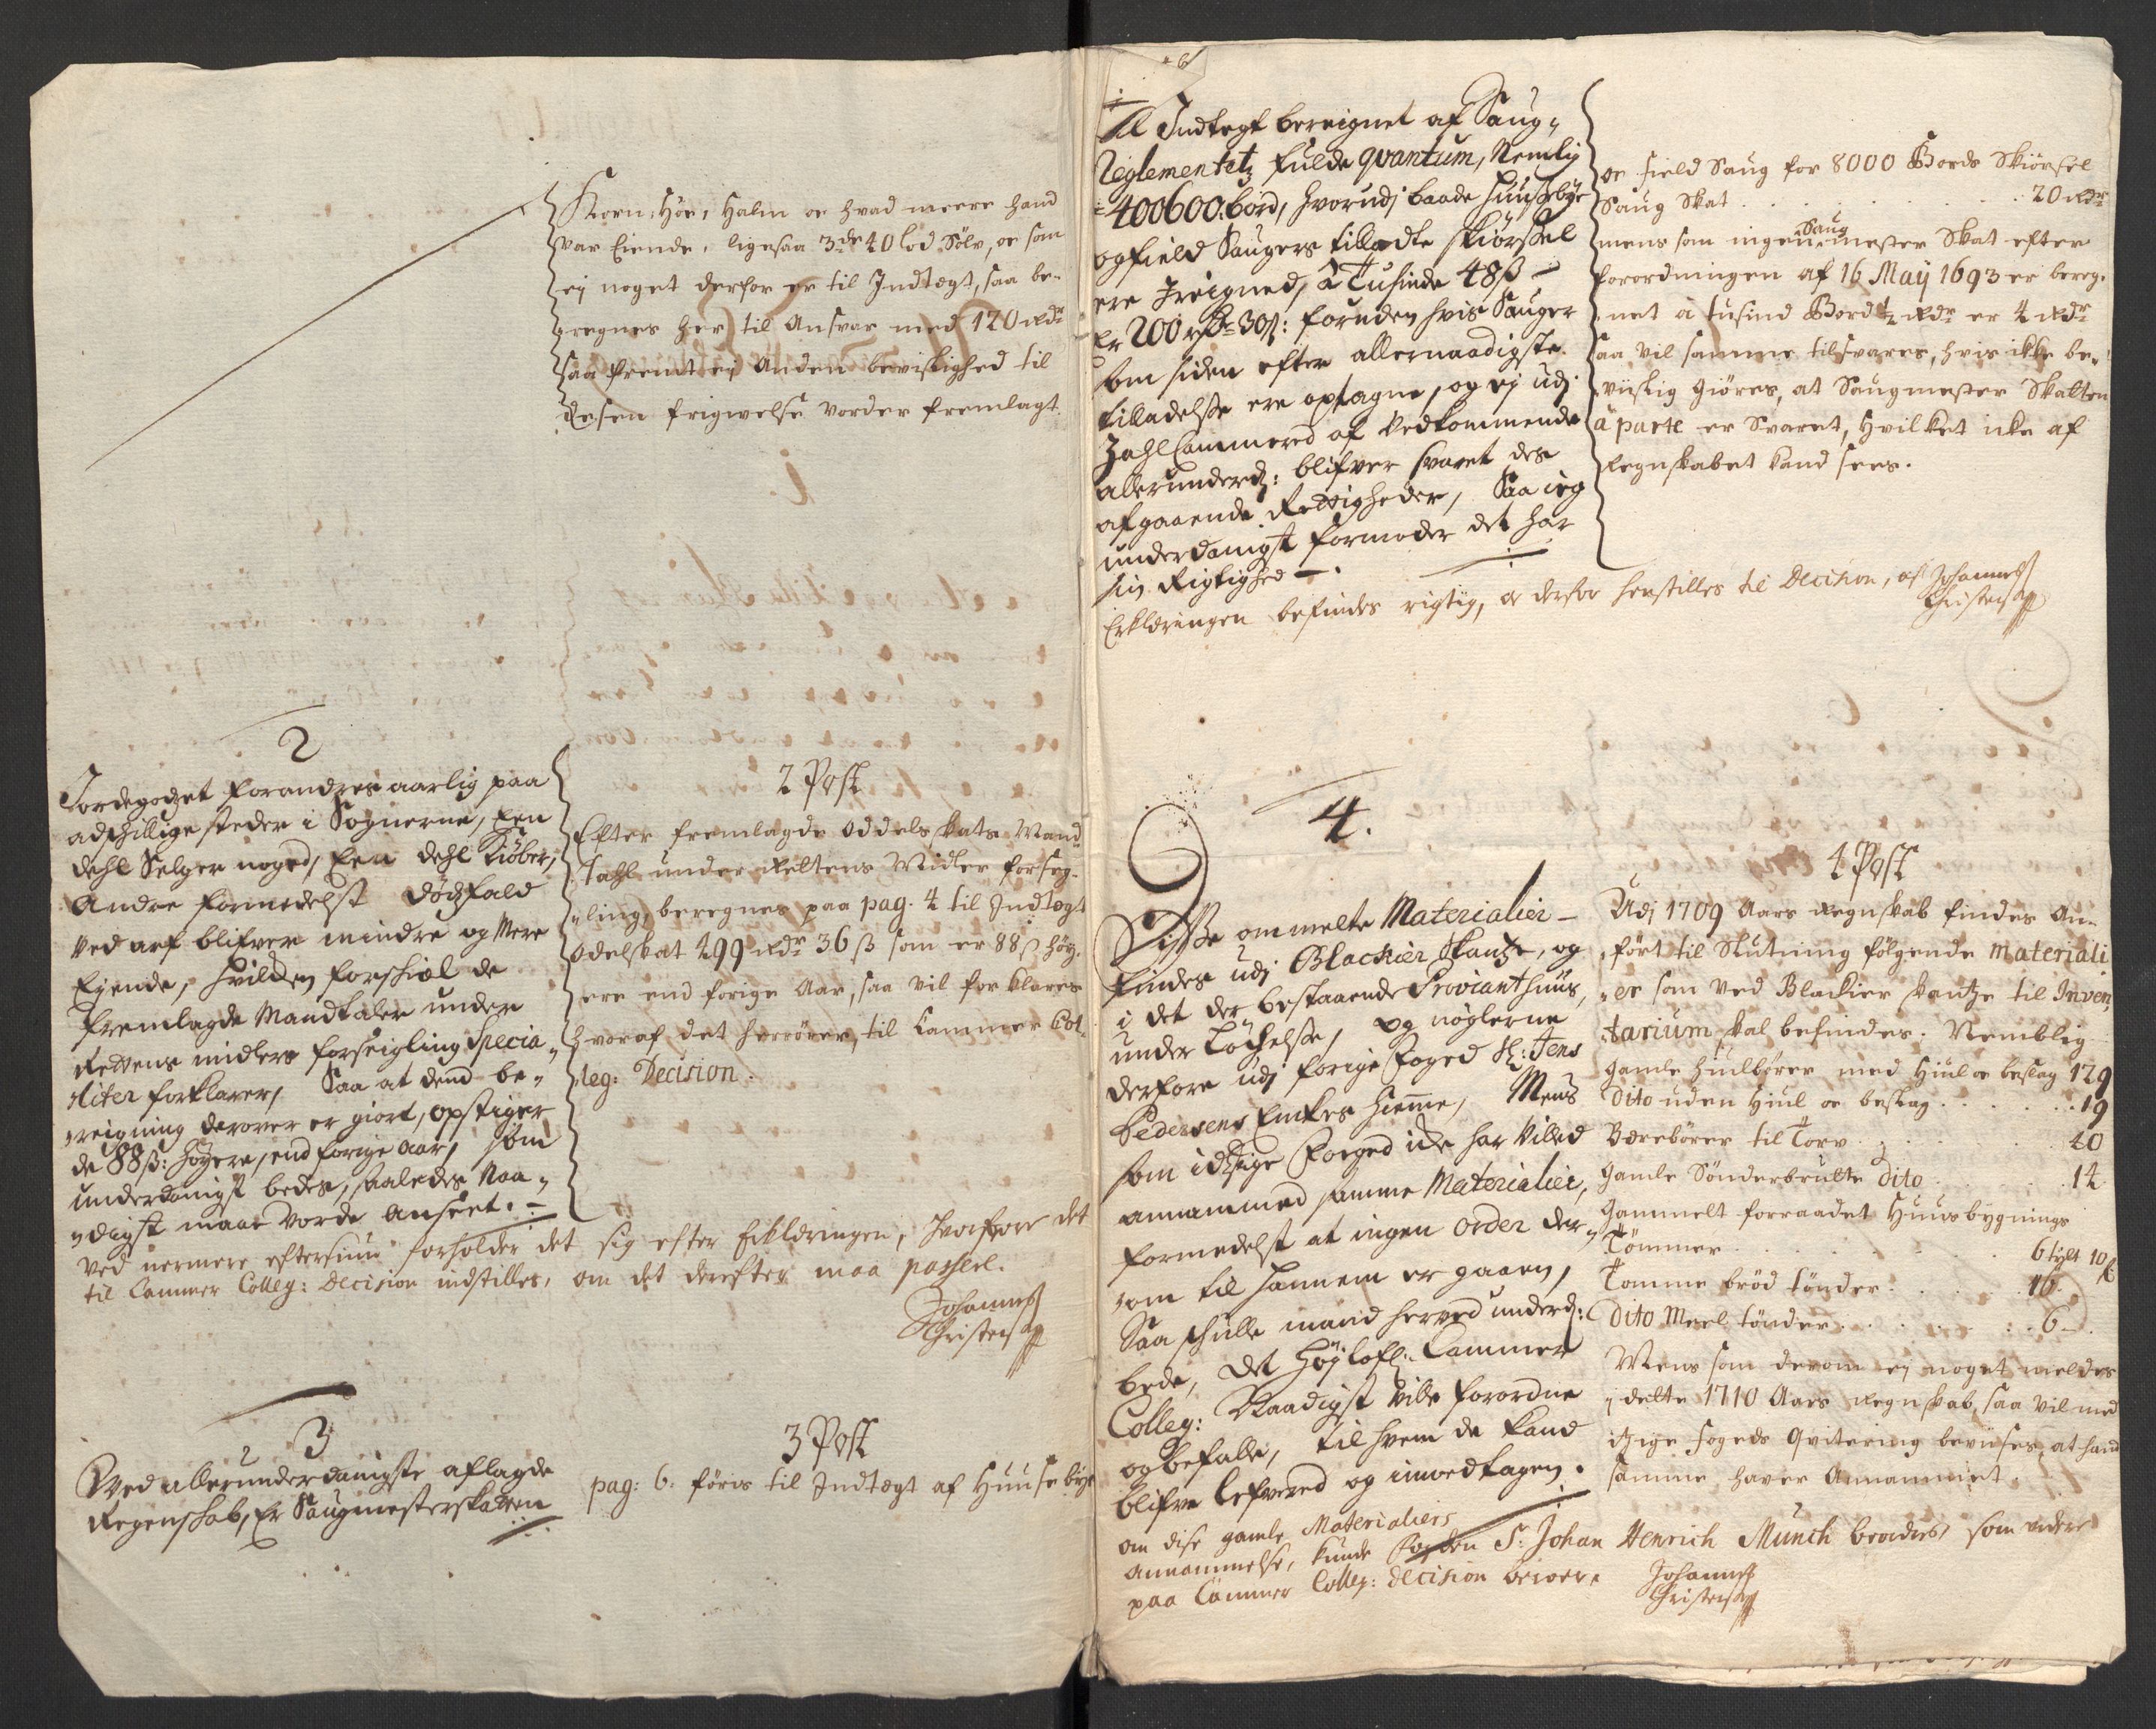 Korn, Höe, Halm oc hvad meere hand
var Eiende, ligesaa 3de 40 lod Sølv, oc som
ej noget derfor er til Indtægt, saa be-
regnes her til Ansvar med 120 Rdr
saa fremt ej Anden beviislighed til
desen frigivelse vorder fremlagt.
2
Jordegodzet forandres aarlig paa
adschillige steder i Sognerne, Een
dehl Selger noged, Een dehl Kiøber,
Andre formedelst dødsfald
ved arf blifver mindre og Mere
Ejende, hvilcken forschiel de
fremlagde Mandtaler under
Rettens midlers forseigling Specia-
liter forklarer, Saa at dend be-
reigning derover er giort, opstiger
de 88 ß: høyere, end forige aar, som
underdanigst bedes, saaledes Naa-
digst maae vorde anseet.
2 Post
Efter fremlagde Oddels skats Mand
Tahl under Rettens Midler forseg-
ling, beregnes paa pag. 4 til Indtægt
Odelskat 499 Rdr 36 ß som er 88 ß høy-
ere end forige Aar, saa vil forklares
hvoraf det herrörer, til Cammer Col-
leg: Decision.
Ved nermere eftersiun forholder det sig efter Erkldringen, hvorfore det
til Cammer Colleg: Decision indstilles, om det derefter maa passere.
Johannes
Christensen
3
Ved allerunderdanigste aflagde
Regenschab, Er Saugmesterskatten
3 Post
pag: 6. föris til Indtægt af Huusebye
6
Til Indtegt bereignet af Saug-
Reglementetz fulde qvantum, Nemlig
400600 bord, hvorudj baade Huusebye
og field Saugers tilladte skiörsel
ere Ireigned, à Tusinde 48 ß
Er 200 rdr 30 ß: foruden hvis Sauger
som siden efter allernaadigste
tilladelse ere optagne, og ej udj
Zahl Cammered af Vedkommende
allerunderd: blifver svaret des
afgaaende Rettigheder, Saa ieg
underdanigst formoder det har
sin Rigtighed.
oc field Saug for 8000 Bords Skiörsel
Saug Skat . . . . . . 20 Rdr
mens som ingen Saug mester Skat efter
forordningen af 16 Maÿ 1693 er bereg-
net à tusind Bord ½ Rdr er 4 Rdr
saa vil samme tilsvares, hvis ikke be-
viislig giöres, at Saugmester Skatten
à parte er Svaret, Hvilket icke af
Regnskabet kand sees.
Erkldringen befindes rigtig, oc derfor henstilles til Decision, af Johannes
Christensen
4.
Disse ommelte Materialier
findes udj Blackiær Skantze, og
i det der bestaaende Provianthuus,
under Löchelse, og nøglerne
derfore udj forige Foged Sl: Jens
Pedersens Enkes hieme, Mens
som idtzige Foeged icke har villed
annammed samme Materialier,
formedelst at ingen order der-
om til hannem er gaaen,
Saa schulle mand herved underd:
bede, det Höylofl: Cammer
Colleg: Naadigst ville forordne
og befalle, til hvem de kand
blifve lefvered og imodtagen.
4 Post
Udj 1709 Aars Regnskab findes An-
fört til Slutning følgende Materiali
er som ved Blackier skantze til Inven
tarium skal befindes. Nemblig
Gamle Hiulbörer med Hiul oc beslag 129
Dito uden Hiul oc beslag . . . . . 19
Bærebörer til Torv . . . . . 40
Gamle Sönderbrutte Dito . . . . . 14
Gammelt forraadet Huus bygnings
Tömmer . . . . . 6 tylt 10 st
Tomme bröd Tönder . . . . . 16
Dito Meel tönder . . . . . 6
Mens som derom ej noget meldes
i dette 1710 Aars Regnskab, saa vil med
itzige fogeds Qvitering beviises, at hand
samme haver Annammet.
om dise gamle Materialiers
annammelse, kunde fogden Sr: Johan Henrich Munch beordres, som videre
paa Cammer Colleg: Decision beroer.
Johannes
Christensen